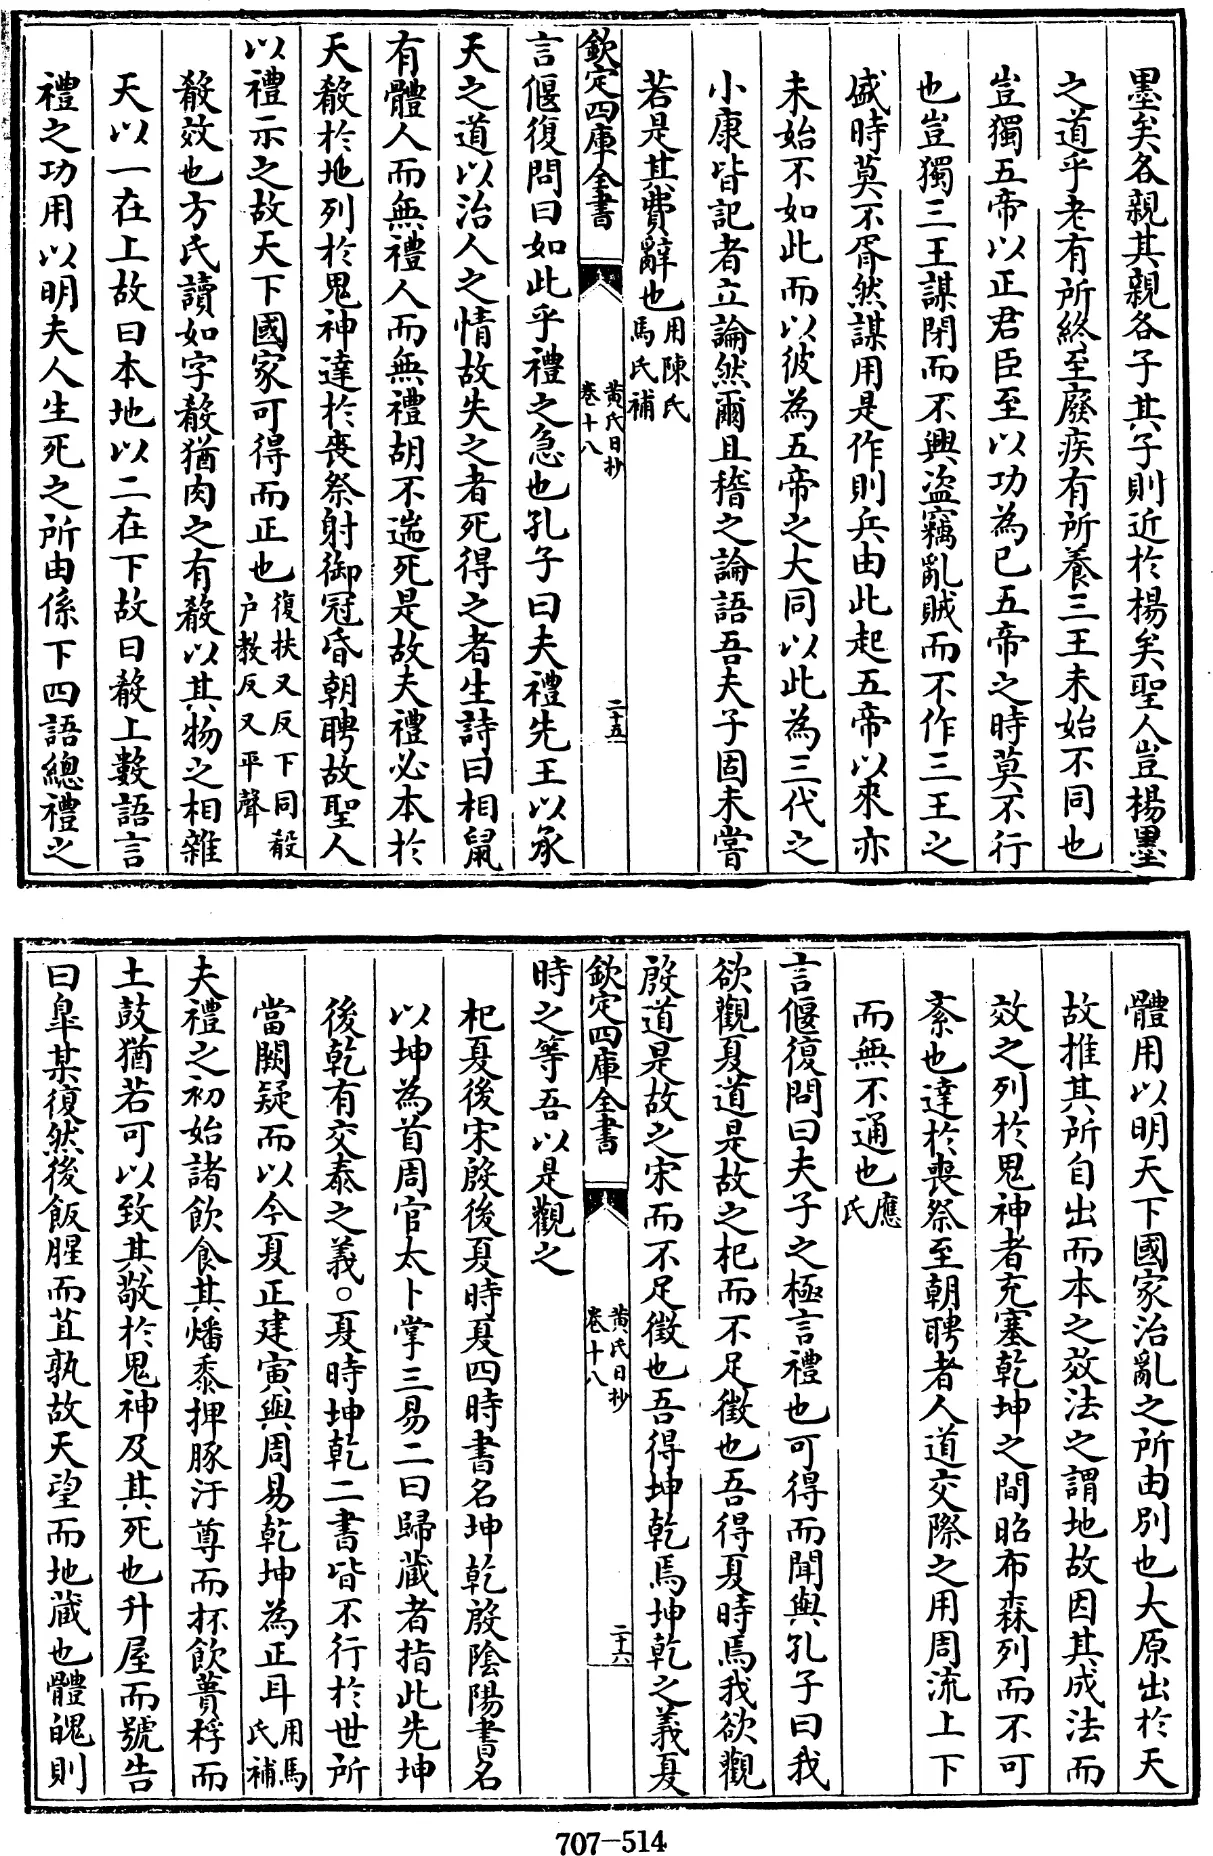 墨矣各親其親各子其子則近於楊矣聖人豈楊墨
之道乎老有所終至廢疾有所養三王未始不同也
豈獨五帝以正君臣至以功為已五帝之時莫不行
也豈獨三王謀閉而不興盜竊亂賊而不作三王之
盛時莫不胥然謀用是作則兵由此起五帝以來亦
未始不如此而以彼為五帝之大同以此為三代之
小康皆記者立論然爾且稽之論語吾夫子固未嘗
若是其費辭也用陳氏馬氏補
欽定四庫全書 黃氏日抄卷十八 二十五
言偃復問曰如此乎禮之急也孔子曰夫禮先王以承
天之道以治人之情故失之者死得之者生詩曰相鼠
有體人而無禮人而無禮胡不遄死是故夫禮必本於
天殽於地列於鬼神達於喪祭射御冠昏朝聘故聖人
以禮示之故天下國家可得而正也復扶又反下同殽户教反又平聲
殽效也方氏讀如字殽猶肉之有殽以其物之相雜
天以一在上故曰本地以二在下故曰殽上數語言
禮之功用以明夫人生死之所由係下四語總禮之
體用以明天下國家治亂之所由別也大原出於天
故推其所自出而本之效法之謂地故因其成法而
效之列於鬼神者充塞乾坤之間昭布森列而不可
紊也達於喪祭至朝聘者人道交際之用周流上下
而無不通也應氏
言偃復問曰夫子之極言禮也可得而聞與孔子曰我
欲觀夏道是故之杞而不足徵也吾得夏時焉我欲觀
殷道是故之宋而不足徵也吾得坤乾焉坤乾之義夏
欽定四庫全書 黃氏日抄卷十八 二十六
時之等吾以是觀之
杞夏後宋殷後夏時夏四時書名坤乾殷陰陽書名
以坤為首周官太卜掌三易二曰歸藏者指此先坤
後乾有交泰之義○夏時坤乾二書皆不行於世所
當闕疑而以今夏正建寅與周易乾坤為正耳用馬氏補
夫禮之初始諸飲食其燔黍捭豚汙尊而抔飲蕢桴而
土鼓猶若可以致其敬於鬼神及其死也升屋而號告
曰臯某復然後飯腥而苴孰故天望而地藏也體魄則
707-514